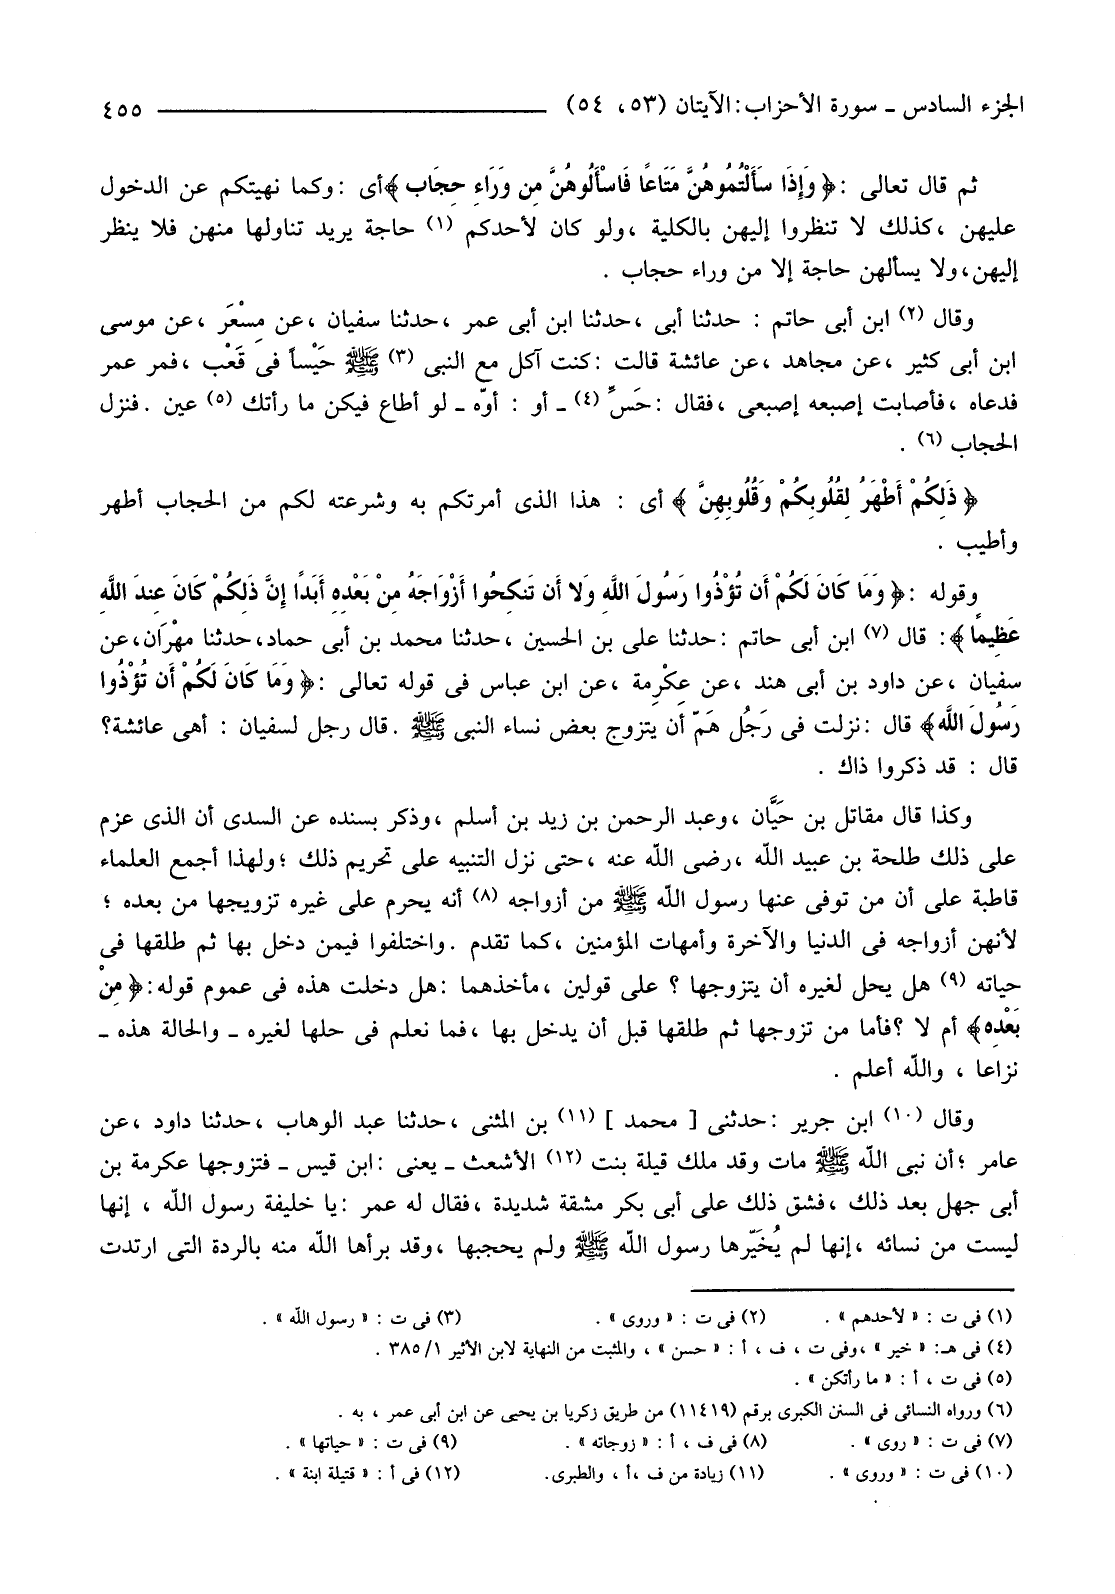 الجزء السادس ـ سورة الأحزاب: الآيتان (٥٣، ٥٤) ٤٥٥
ثم قال تعالى : ﴿ وَإِذَا سَأَلْتُمُوهُنَّ مَتَاعًا فَاسْأَلُوهُنَّ مِن وَرَاءِ حِجَاب ﴾أى : وكما نهيتكم عن الدخول
عليهن ، كذلك لا تنظروا إليهن بالكلية ، ولو كان لأحدكم (١) حاجة يريد تناولها منهن فلا ينظر
إليهن، ولا يسألهن حاجة إلا من وراء حجاب .
وقال (٢) ابن أبى حاتم : حدثنا أبى ، حدثنا ابن أبى عمر ، حدثنا سفيان ، عن مِسْعَر ، عن موسى
ابن أبى كثير ، عن مجاهد ، عن عائشة قالت : كنت آكل مع النبى (٣) ﷺ حَيْساً فى قَعْب ، فمر عمر
فدعاه ، فأصابت إصبعه إصبعى ، فقال : حَسِّ (٤) ـ أو : أوّه ـ لو أطاع فيكن ما رأتك (٥) عين . فنزل
الحجاب (٦) .
﴿ ذَلِكُمْ أَطْهَرُ لِقُلُوبِكُمْ وَقُلُوبِهِنَّ ﴾ أى : هذا الذى أمرتكم به وشرعته لكم من الحجاب أطهر
وأطيب .
وقوله : ﴿ وَمَا كَانَ لَكُمْ أَن تُؤْذُوا رَسُولَ اللَّهِ وَلا أَن تَنكِحُوا أَزْوَاجَهُ مِنْ بَعْدِهِ أَبَدًا إِنَّ ذَلِكُمْ كَانَ عِندَ اللَّهِ
عَظِيمًا ﴾: قال (٧) ابن أبى حاتم : حدثنا على بن الحسين ، حدثنا محمد بن أبى حماد، حدثنا مِهْرَان، عن
سفيان ، عن داود بن أبى هند ، عن عِكْرِمة ، عن ابن عباس فى قوله تعالى : ﴿ وَمَا كَانَ لَكُمْ أَن تُؤْذُوا
رَسُولَ اللَّه﴾ قال : نزلت فى رَجُل هَمّ أن يتزوج بعض نساء النبى ﷺ . قال رجل لسفيان : أهى عائشة؟
قال : قد ذكروا ذاك .
وكذا قال مقاتل بن حَيَّان ، وعبد الرحمن بن زيد بن أسلم ، وذكر بسنده عن السدى أن الذى عزم
على ذلك طلحة بن عبيد الله ، رضى الله عنه ، حتى نزل التنبيه على تحريم ذلك ؛ ولهذا أجمع العلماء
قاطبة على أن من توفى عنها رسول الله ﷺ من أزواجه (٨) أنه يحرم على غيره تزويجها من بعده ؛
لأنهن أزواجه فى الدنيا والآخرة وأمهات المؤمنين ، كما تقدم . واختلفوا فيمن دخل بها ثم طلقها فى
حياته (٩) هل يحل لغيره أن يتزوجها ؟ على قولين ، مأخذهما : هل دخلت هذه فى عموم قوله: ﴿ مِنْ
بَعْدِه﴾ أم لا ؟ فأما من تزوجها ثم طلقها قبل أن يدخل بها ، فما نعلم فى حلها لغيره ـ والحالة هذه ـ
نزاعا ، والله أعلم .
وقال (١٠) ابن جرير : حدثنى [ محمد ] (١١) بن المثنى ، حدثنا عبد الوهاب ، حدثنا داود ، عن
عامر ؛ أن نبى الله ﷺ مات وقد ملك قيلة بنت (١٢) الأشعث ـ يعنى : ابن قيس ـ فتزوجها عكرمة بن
أبى جهل بعد ذلك ، فشق ذلك على أبى بكر مشقة شديدة ، فقال له عمر : يا خليفة رسول الله ، إنها
ليست من نسائه ، إنها لم يُخَيّرها رسول الله ﷺ ولم يحجبها ، وقد برأها الله منه بالردة التى ارتدت
(١) فى ت : « لأحدهم » . (٢) فى ت : « وروى » . (٣) فى ت : « رسول الله » .
(٤) فى هـ: « خير » ، وفى ت ، ف ، أ : « حسن » ، والمثبت من النهاية لابن الأثير ١/ ٣٨٥ .
(٥) فى ت ، أ : « ما رأتكن » .
(٦) ورواه النسائى فى السنن الكبرى برقم (١١٤١٩) من طريق زكريا بن يحيى عن ابن أبى عمر ، به .
(٧) فى ت : « روى » . (٨) فى ف ، أ : « زوجاته » . (٩) فى ت : « حياتها » .
(١٠) فى ت : « وروى » . (١١) زيادة من ف ،أ ، والطبرى. (١٢) فى أ : « قتيلة ابنة » .